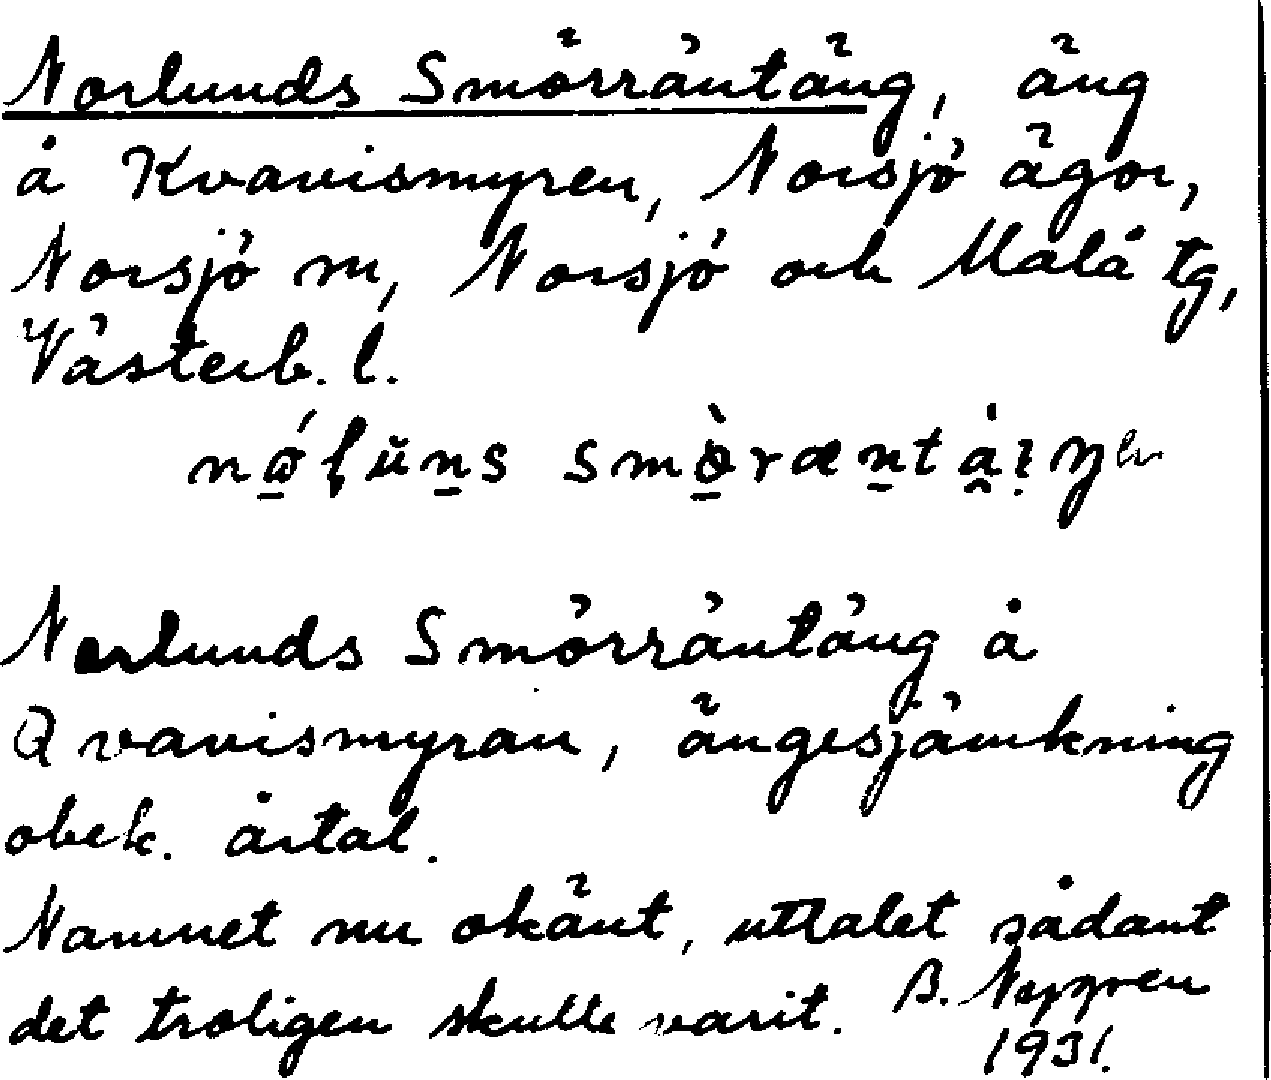 Norlunds Smörräntäng, äng
å Kvavismyren, Norsjö ägor,
Norsjö sn, Norsjö och Malå tg,
Västerb. l.
Norlunds Smörräntäng å
Qvavismyran, ängesjämkning
obek. årtal.
Namnet nu okänt, uttalet sådant
det troligen skulle varit. B. Nygren
1931.